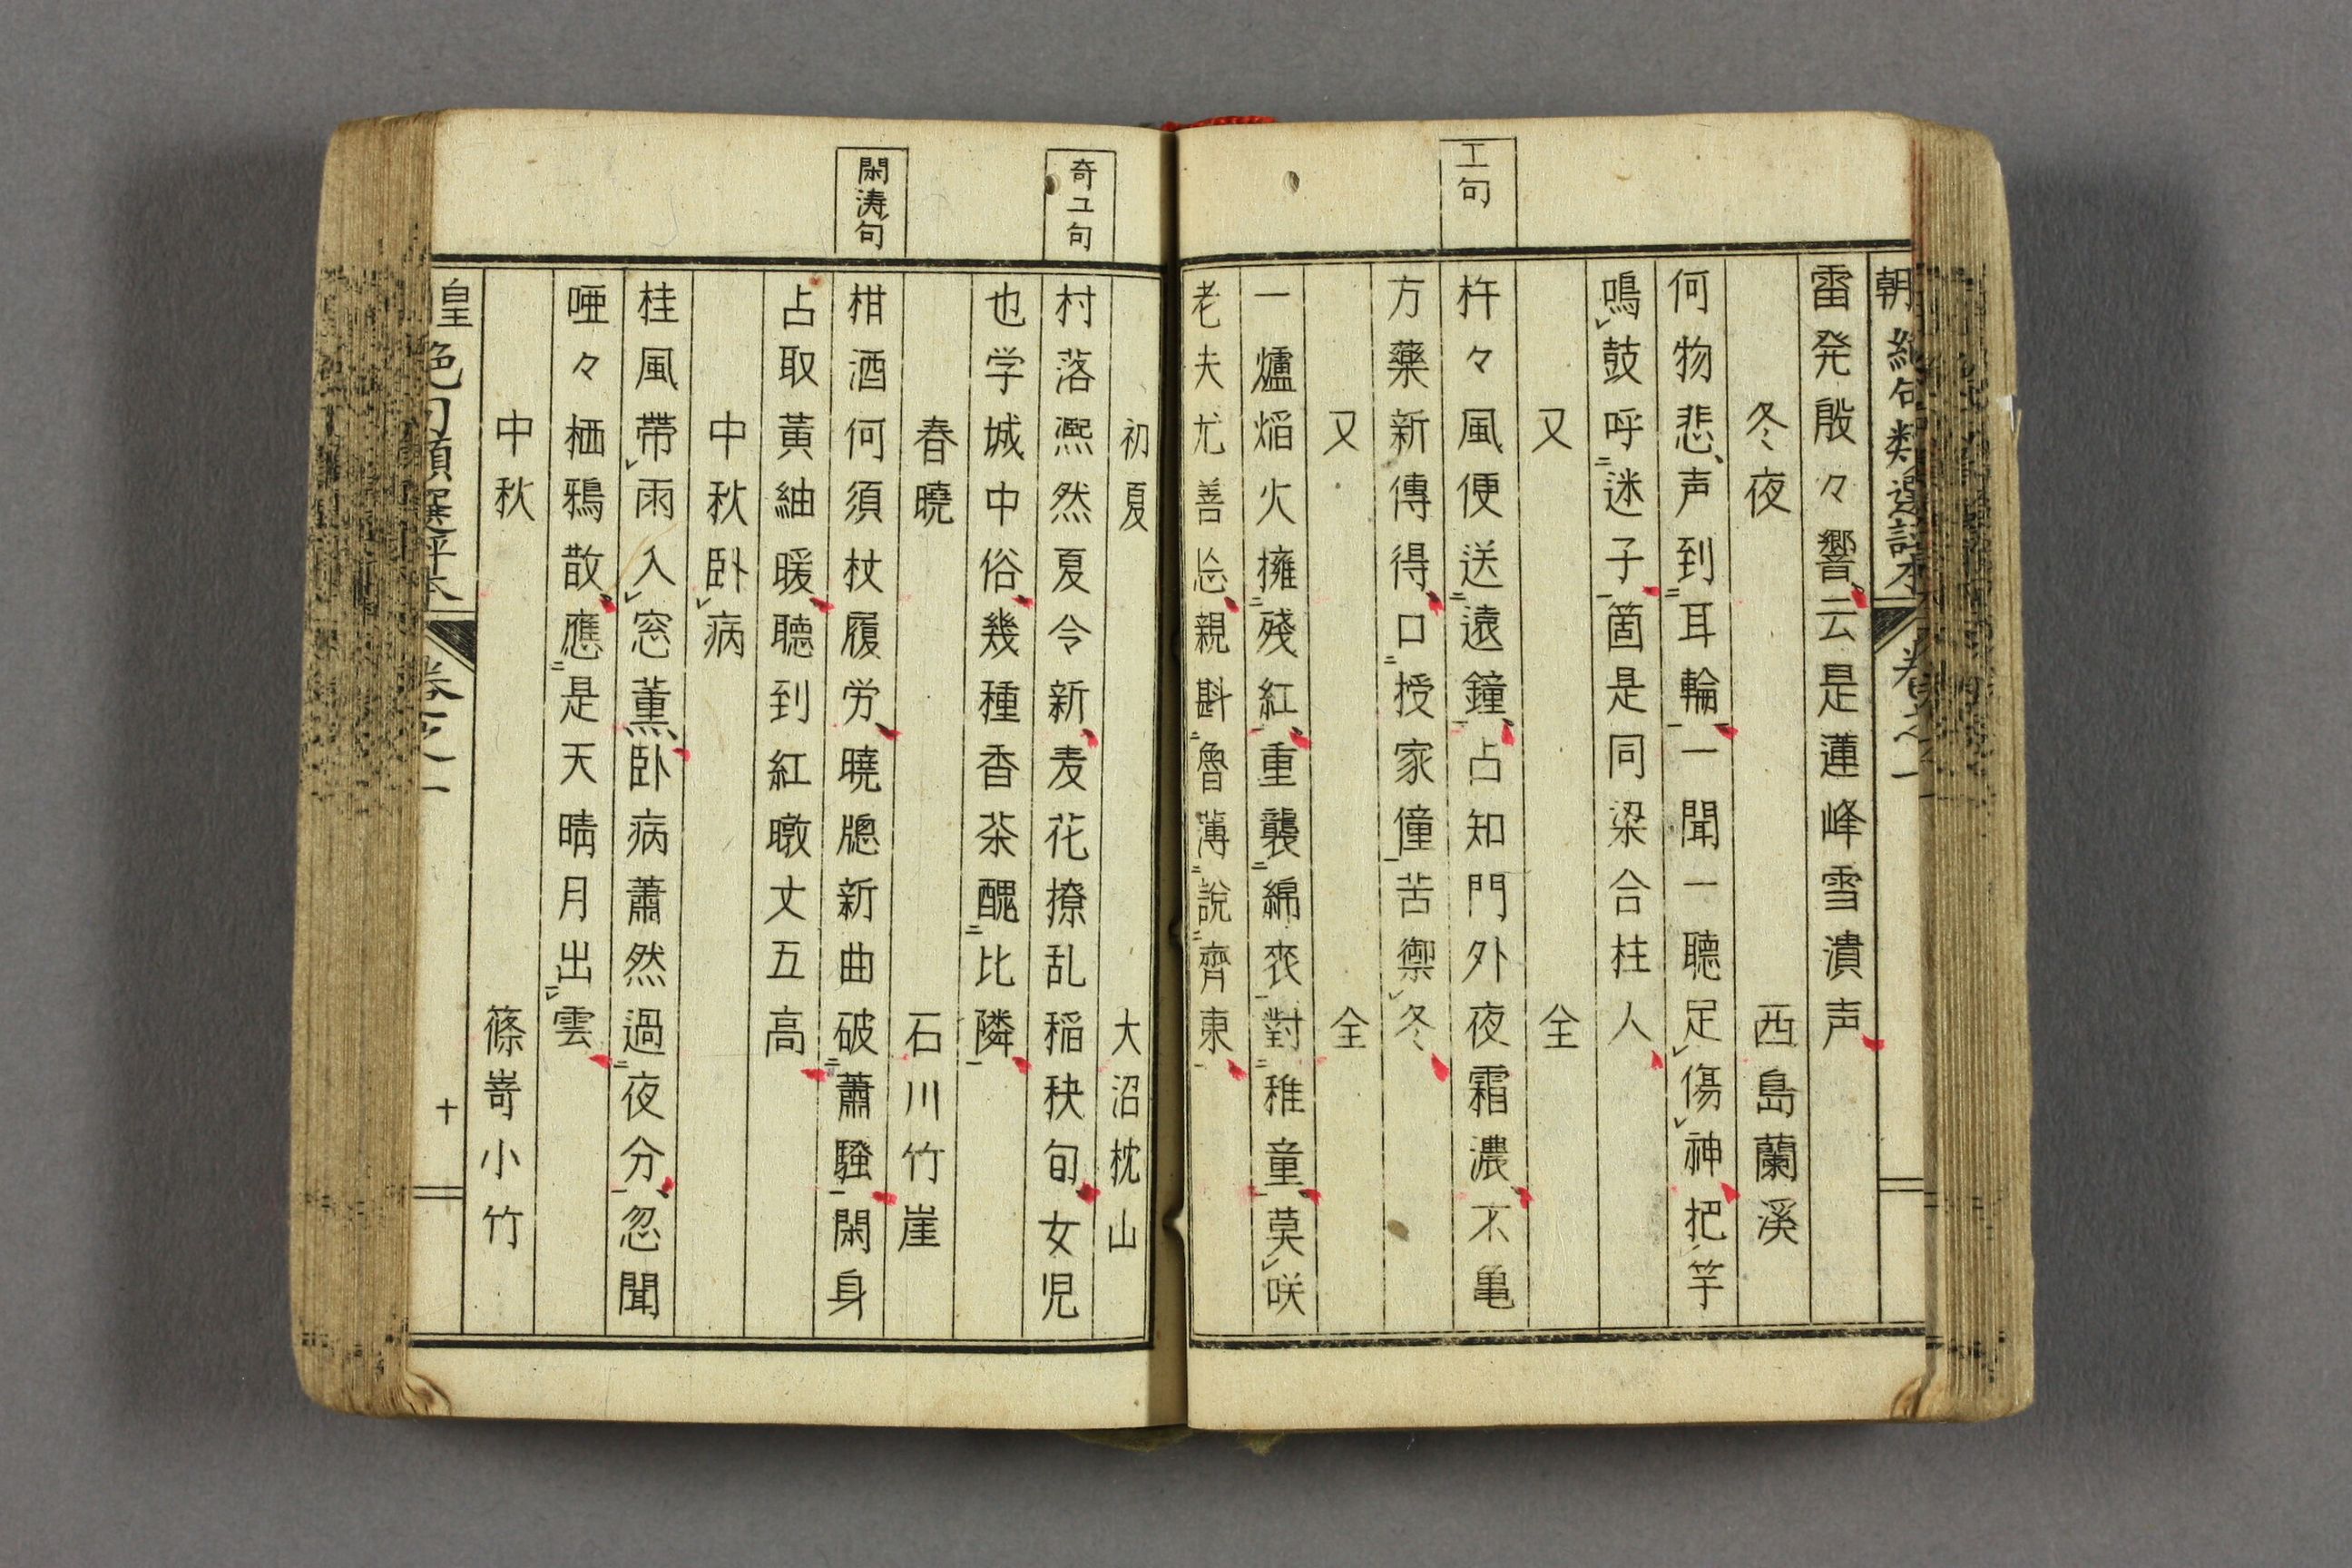 工句
朝絶句類選評本
巻之一
雷発殷々響云是蓮峰雪潰声
冬夜 西島蘭溪
何物悲声到耳輪一聞一聴足傷神把竿
鳴鼓呼迷子箇是同梁合柱人
又 仝
杵々風便送遠鐘占知門外夜霜濃不亀
方藥新傳得口授家僮苦禦冬
又 仝
一爐焰火擁殘紅重襲綿衣對稚童莫咲
老夫尤善忘親斟魯薄說齊東
奇ユ句
閑涛句
初夏 大沼枕山
村落凞然夏令新麦花撩乱稲秧旬女児
也学城中俗幾種香茶醜比隣
春曉 石川竹崖
柑酒何須杖履労曉牕新曲破蕭騷閑身
占取黃紬暖聴到紅暾丈五高
中秋卧病
桂風帶雨入窓薫卧病蕭然過夜分忽聞
唖々栖鴉散應是天晴月出雲
中秋 篠嵜小竹
皇絶句類選評本
巻之一
十